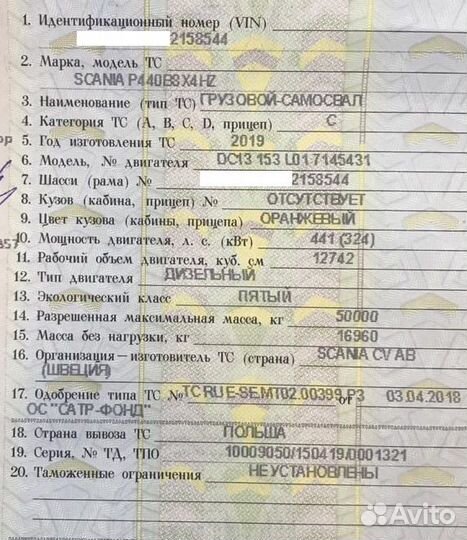 1. Идентификационный номер (VIN)
2158544
2. Марка, модель ТС
SCANIA P440B8X4HZ
3. Наименование (тип ТС) ГРУЗОВОЙ-САМОСВАЛ
4. Категория ТС (A, B, C, D, прицеп) C
5. Год изготовления ТС 2019
6. Модель, № двигателя DC13 153 L01 7145431
7. Шасси (рама) № 2158544
8. Кузов (кабина, прицеп) № ОТСУТСТВУЕТ
9. Цвет кузова (кабины, прицепа) ОРАНЖЕВЫЙ
10. Мощность двигателя, л. с. (кВт) 441 (324)
11. Рабочий объем двигателя, куб. см 12742
12. Тип двигателя ДИЗЕЛЬНЫЙ
13. Экологический класс ПЯТЫЙ
14. Разрешенная максимальная масса, кг 50000
15. Масса без нагрузки, кг 16960
16. Организация—изготовитель ТС (страна) SCANIA CV AB
(ШВЕЦИЯ)
17. Одобрение типа ТС № ТС RU E-SE.MT02.00399.P3 от 03.04.2018
ОС "САТР-ФОНД"
18. Страна вывоза ТС ПОЛЬША
19. Серия, № ТД, ТПО 10009050/150419/0001321
20. Таможенные ограничения НЕ УСТАНОВЛЕНЫ
Avito